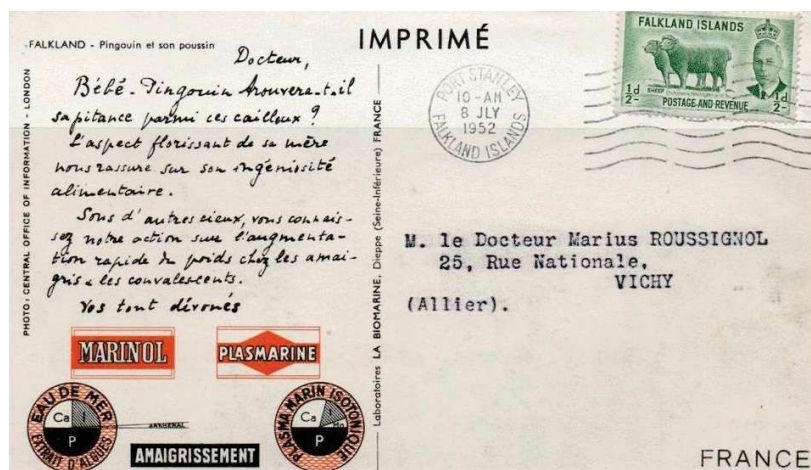 FALKLAND - Pingouin et son poussin
Docteur,
Bébé-Pingouin trouvera-t-il
sa pitance parmi ces cailloux ?
L'aspect florissant de sa mère
nous rassure sur son ingéniosité
alimentaire.
Sous d'autres cieux, vous connais-
sez notre action sur l'augmenta-
tion rapide du poids chez les amai-
gris & les convalescents.
Vos tout dévoués
PHOTO : CENTRAL OFFICE OF INFORMATION - LONDON
MARINOL
PLASMARINE
EAU DE MER
Ca I
P
EXTRAIT D'ALGUES
ARRHENAL
AMAIGRISSEMENT
PLASMA MARIN ISOTONIQUE
Ca I
Mn
P
Laboratoires LA BIOMARINE, Dieppe (Seine-Inférieure) FRANCE
IMPRIMÉ
PORT STANLEY
10-AM
8 JLY
1952
FALKLAND ISLANDS
FALKLAND ISLANDS
½d
2-
SHEEP
½d
2-
POSTAGE AND REVENUE
M. le Docteur Marius ROUSSIGNOL
25, Rue Nationale,
VICHY
(Allier).
FRANCE